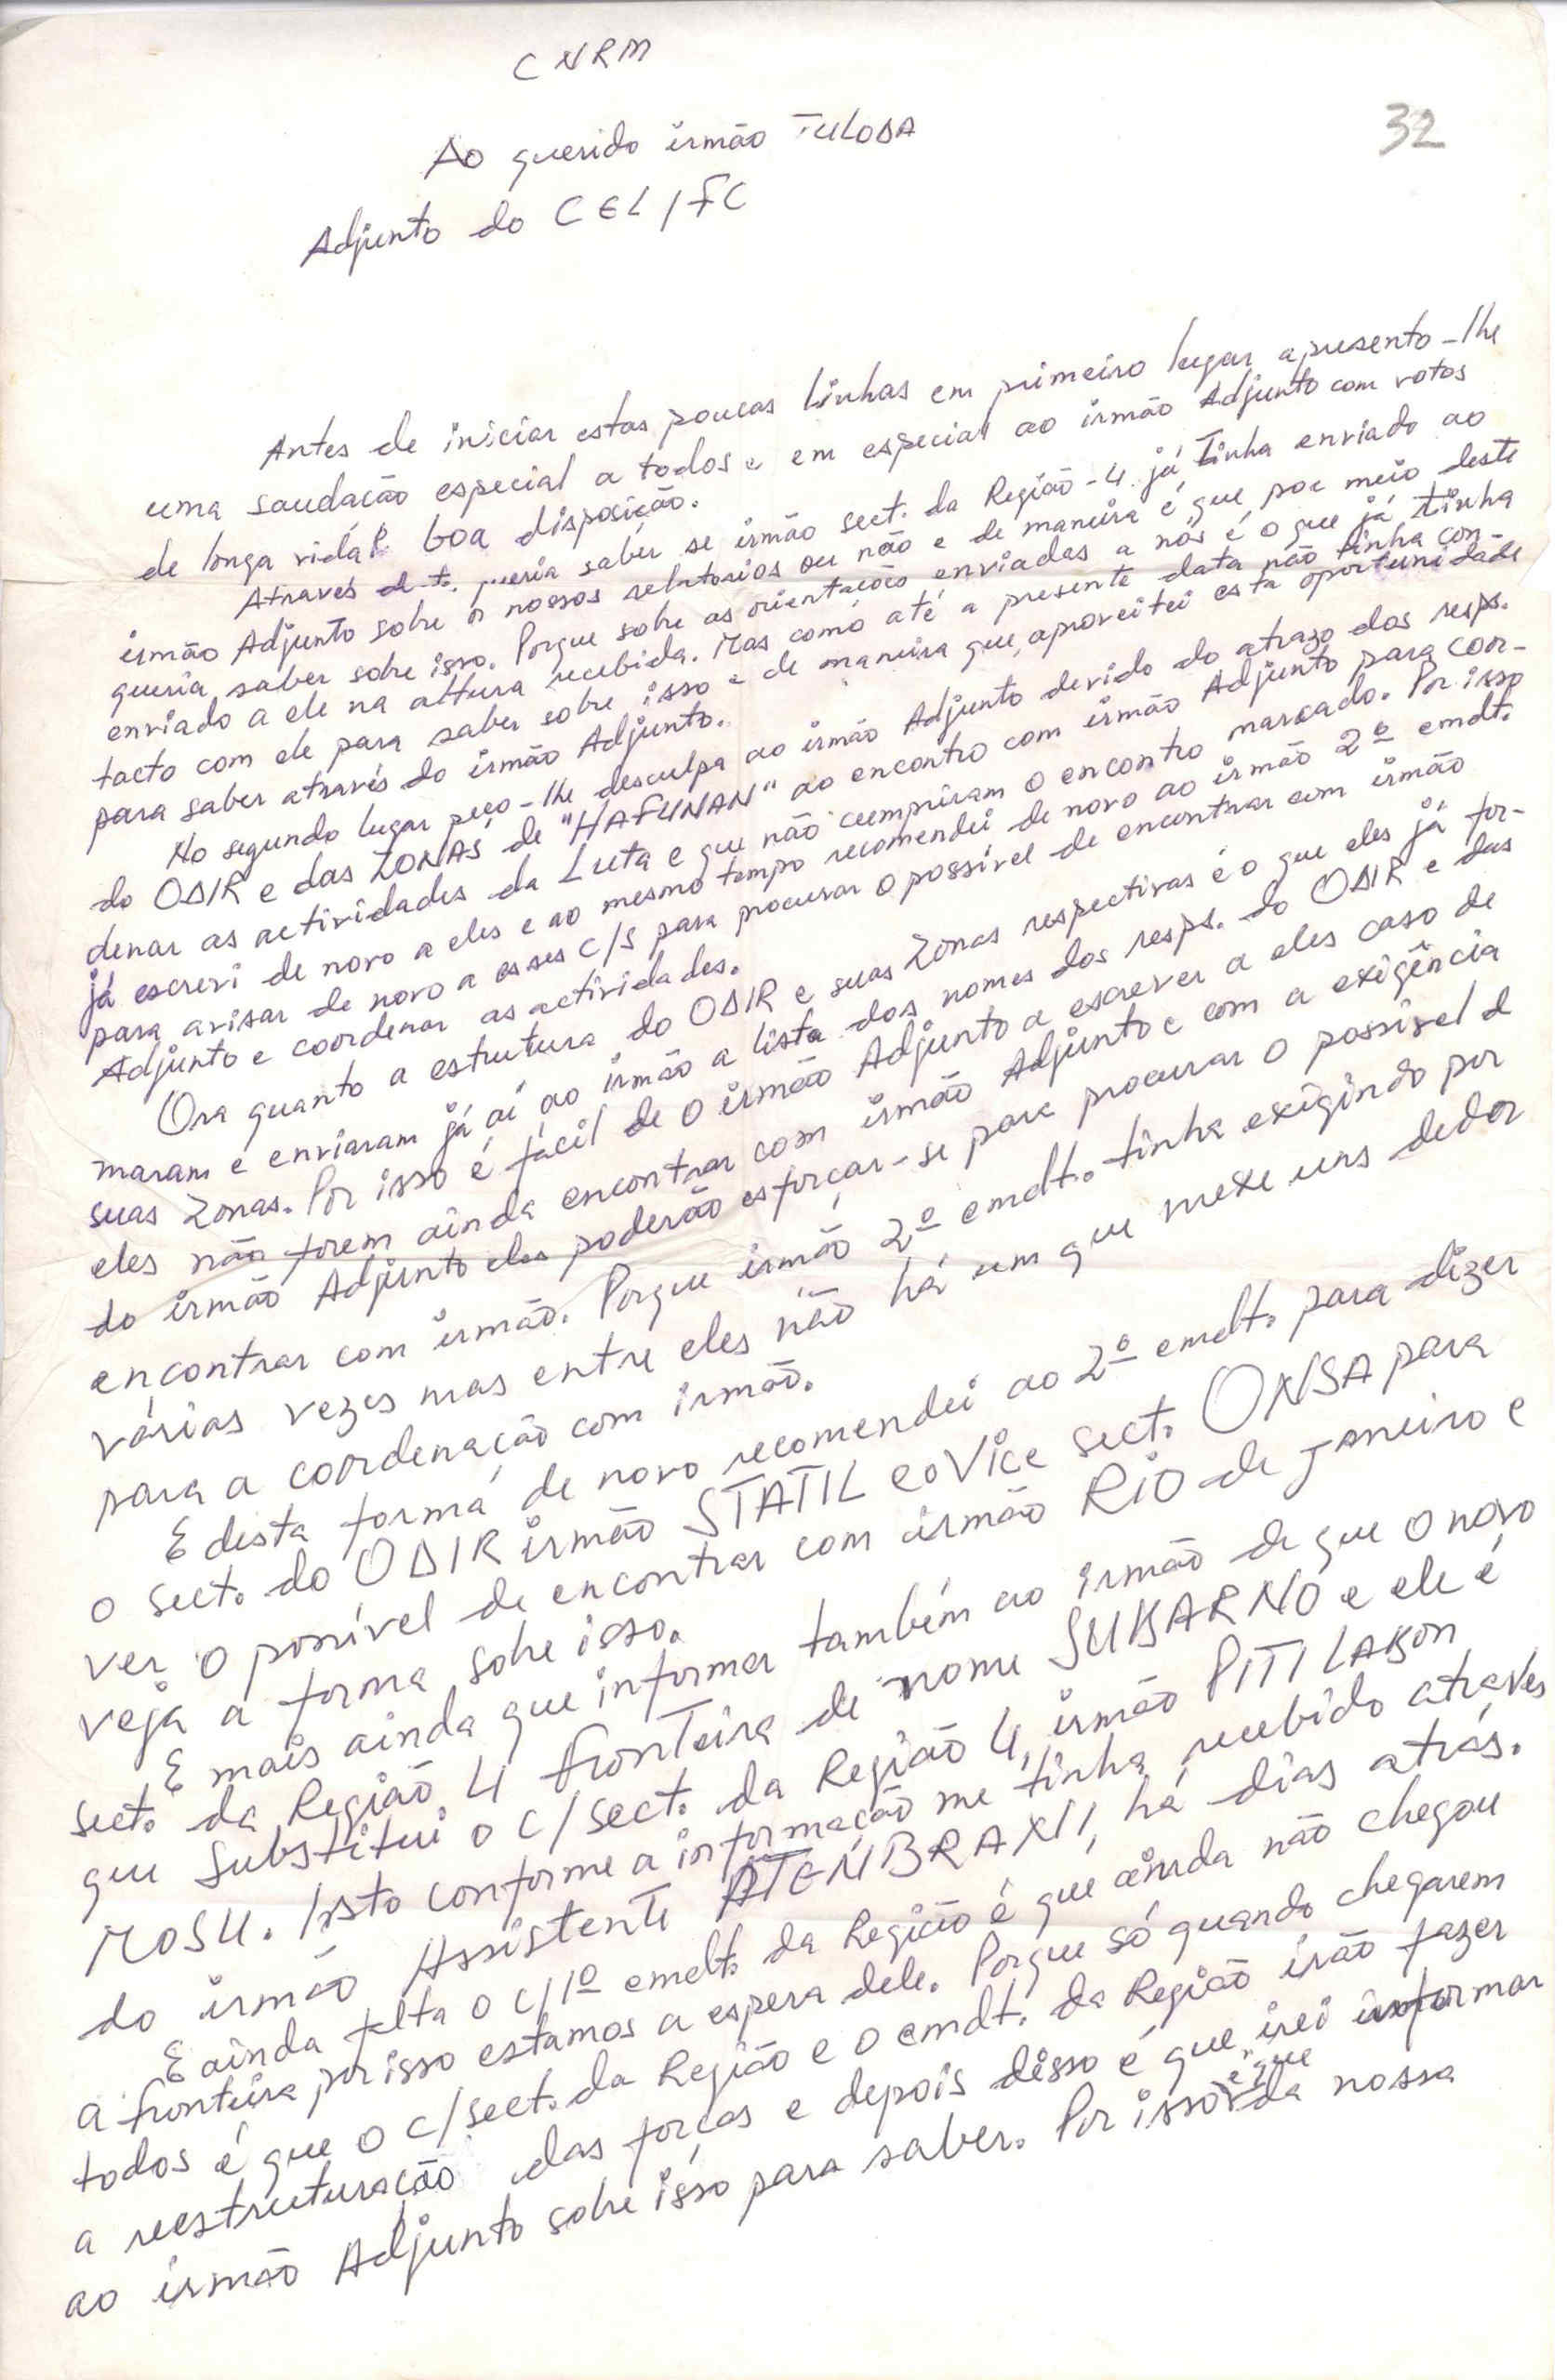 CNRM
32
Ao querido irmão TULODA
Adjunto do CEL/FC
Antes de iniciar estas poucas linhas em primeiro lugar apresento-lhe
uma saudação especial a todos e em especial ao irmão Adjunto com votos
de longa vida boa disposição.
Através saber se irmão sect. da Região-4 já tinha enviado ao
irmão Adjunto sobre os nossos relatorios ou não e de maneira é que por meio deste
queria saber sobre isso. Porque sobre as orientação enviadas a nós é o que já tinha
enviado a ele na altura recebida. Mas como até a presente data não tinha con-
tacto com ele para saber sobre isso e de maneira que aproveitei esta oportunidade
para saber através do irmão Adjunto.
No segundo lugar peço-lhe desculpa ao irmão Adjunto devido do atrazo dos resps.
do ODIR e das ZONAS de "HAFUNAN" ao encontro com irmão Adjunto para coor-
denar as actividades da Luta e que não cumpriram o encontro marcado. Por isso
já escrevi de novo a eles e ao mesmo tempo recomendei de novo ao irmão 2º cmdt.
para avisar de novo a esses c/s para procurar o possível de encontrar com irmão
Adjunto e coordenar as actividades.
Ora quanto a estrutura do ODIR e suas Zonas respectivas é o que eles já for-
maram e enviaram já aí ao irmão a lista dos nomes dos resps. do ODIR e das
suas Zonas. Por isso é fácil de o irmão Adjunto a escrever a eles caso de
eles não forem ainda encontrar com irmão Adjunto e com a exigência
do irmão Adjunto eles poderão esforçar-se para procurar o possível d
encontrar com irmão. Porque irmão 2º cmdt. tinha exigindo por
várias vezes mas entre eles não há um que mexe uns dedos
para a coordenação com irmão.
E desta forma de novo recomendei ao 2º cmdt. para dizer
o sect. do ODIR irmão STATIL e o Vice sect. ONSA para
ver o possível de encontrar com irmão RIO de JANEIRO e
veja a forma sobre isso.
E mais ainda que informar também ao irmão de que o novo
sect. da Região 4 fronTeira de nome SUKARNO e ele é
que Substitui o c/sect. da Região 4, irmão PITI LAKON
MOSU. Isto conforme a informação me tinha recebido atraves
do irmão Assistente ATENBRAXI, há dias atrás.
E ainda falta o c/1º cmdt. da Região é que ainda não chegou
a fronteira por isso estamos a espera dele. Porque só quando chegarem
todos é que o c/sect. da Região e o cmdt. da Região irão fazer
a reestruturação das forças e depois disso é que irei informar
ao irmão Adjunto sobre isso para saber. Por isso é que da nossa